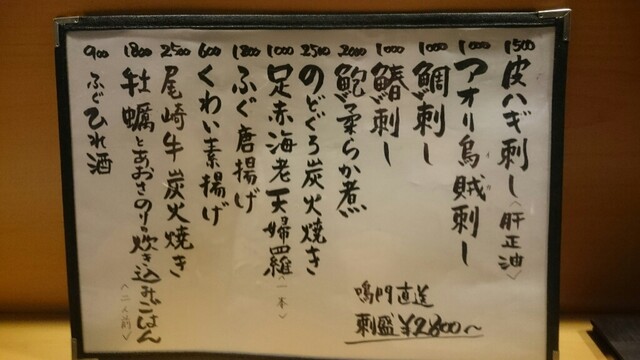 1500 皮ハギ刺し〈肝正油〉
1000 アオリ烏賊刺し
1000 鯛刺し
1000 鰆刺し
2000 鮑柔らか煮
2500 のどぐろ炭火焼き
1000 足赤海老天婦羅〈一本〉
1800 ふぐ唐揚げ
600 くわい素揚げ
2500 尾崎牛炭火焼き
1800 牡蠣とあおさのりの炊き込みごはん〈二人前〉
900 ふぐひれ酒
鳴門直送
刺盛¥2,800〜